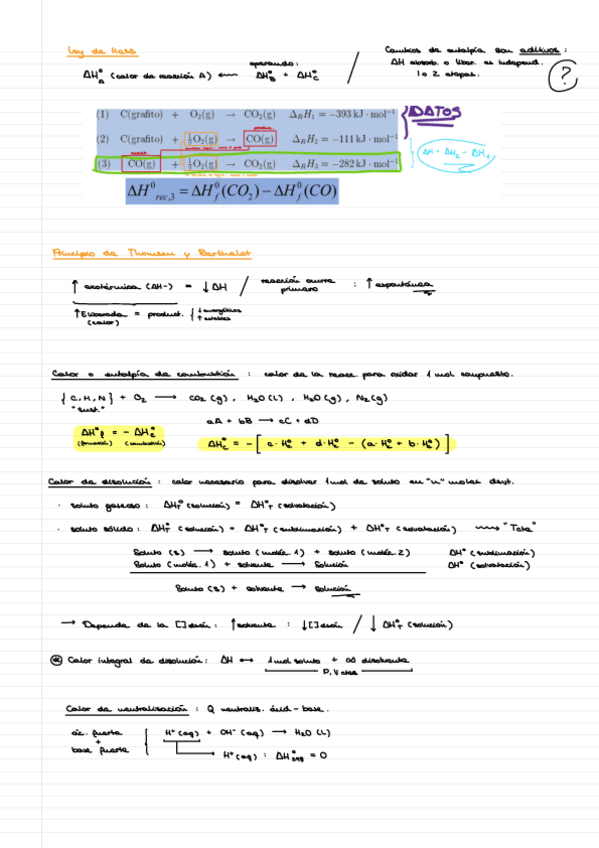 Ley de Hess
ΔH°A (calor de reacción A) ⟵ operando: ΔH°B + ΔH°C / Cambios de entalpía son aditivos:
ΔH absorb. o liber. es independ.
1 o 2 etapas. ?
(1) C(grafito) + O₂(g) → CO₂(g) Δ_R H₁ = −393 kJ · mol⁻¹ DATOS
(2) C(grafito) + ½O₂(g) → CO(g) Δ_R H₂ = −111 kJ · mol⁻¹
(3) CO(g) + ½O₂(g) → CO₂(g) Δ_R H₃ = −282 kJ · mol⁻¹
ΔH⁰rec,3 = ΔH⁰f(CO₂) − ΔH⁰f(CO)
Principio de Thomsen y Berthelot
↑ exotérmica (ΔH-) = ↓ ΔH / reacción ocurre primero : ↑ espontánea
↑ E liberada = product. { ↓ energéticos
(calor) ↑ estables
Calor o entalpía de combustión : calor de la reacc. para oxidar 1 mol compuesto.
{ C, H, N } + O₂ ⟶ CO₂(g), H₂O(l), H₂O(g), N₂(g)
"sust."
aA + bB ⟶ cC + dD
ΔH°f = − ΔH°c
(formación) (combustión)
ΔH°c = − [ c·H°c + d·H°c − (a·H°c + b·H°c) ]
Calor de disolución : calor necesario para disolver 1 mol de soluto en "n" moles dsvt.
· soluto gaseoso : ΔH°T (solución) = ΔH°T (solvatación)
· soluto sólido : ΔH°T (solución) = ΔH°T (sublimación) + ΔH°T (solvatación) ⟿ "Tota"
Soluto (s) ⟶ soluto (moléc. 1) + soluto (moléc. 2) ΔH° (sublimación)
Soluto (moléc. 1) + solvente ⟶ Solución ΔH° (solvatación)
Soluto (s) + solvente ⟶ solución
→ Depende de la [] disón : ↑ solvente : ↓ [] disón / ↓ ΔH°T (solución)
Calor integral de disolución : ΔH ⟷ 1 mol soluto + ∞ disolvente
P, V ctes
Calor de neutralización : Q neutraliz. ácid-base.
ác. fuerte
+
base fuerte
{ H⁺(aq) + OH⁻(aq) ⟶ H₂O (l)
H⁺(aq) : ΔH°298 = 0